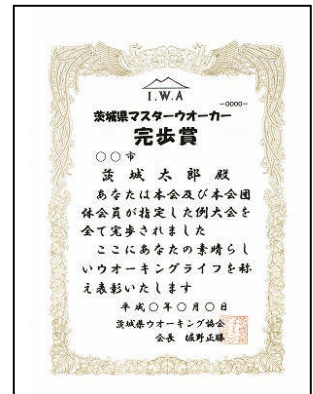 I.W.A
-0000-
茨城県マスターウオーカー
完歩賞
○○市
茨城太郎殿
あなたは本会及び本会団
体会員が指定した例大会を
全て完歩されました
ここにあなたの素晴らし
いウオーキングライフを称
え表彰いたします
平成○年○月○日
茨城県ウオーキング協会
会長 堀野正勝